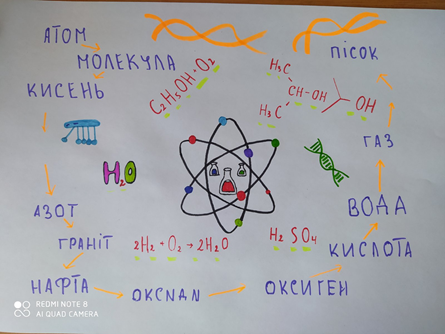 АТОМ
МОЛЕКУЛА
КИСЕНЬ
C₂H₅OH + O₂
ПІСОК
H₃C
CH-OH
H₃C
OH
ГАЗ
H₂O
АЗОТ
ГРАНІТ
2H₂ + O₂ → 2H₂O
H₂SO₄
ВОДА
КИСЛОТА
НАФТА
ОКСИГЕН
REDMI NOTE 8
AI QUAD CAMERA